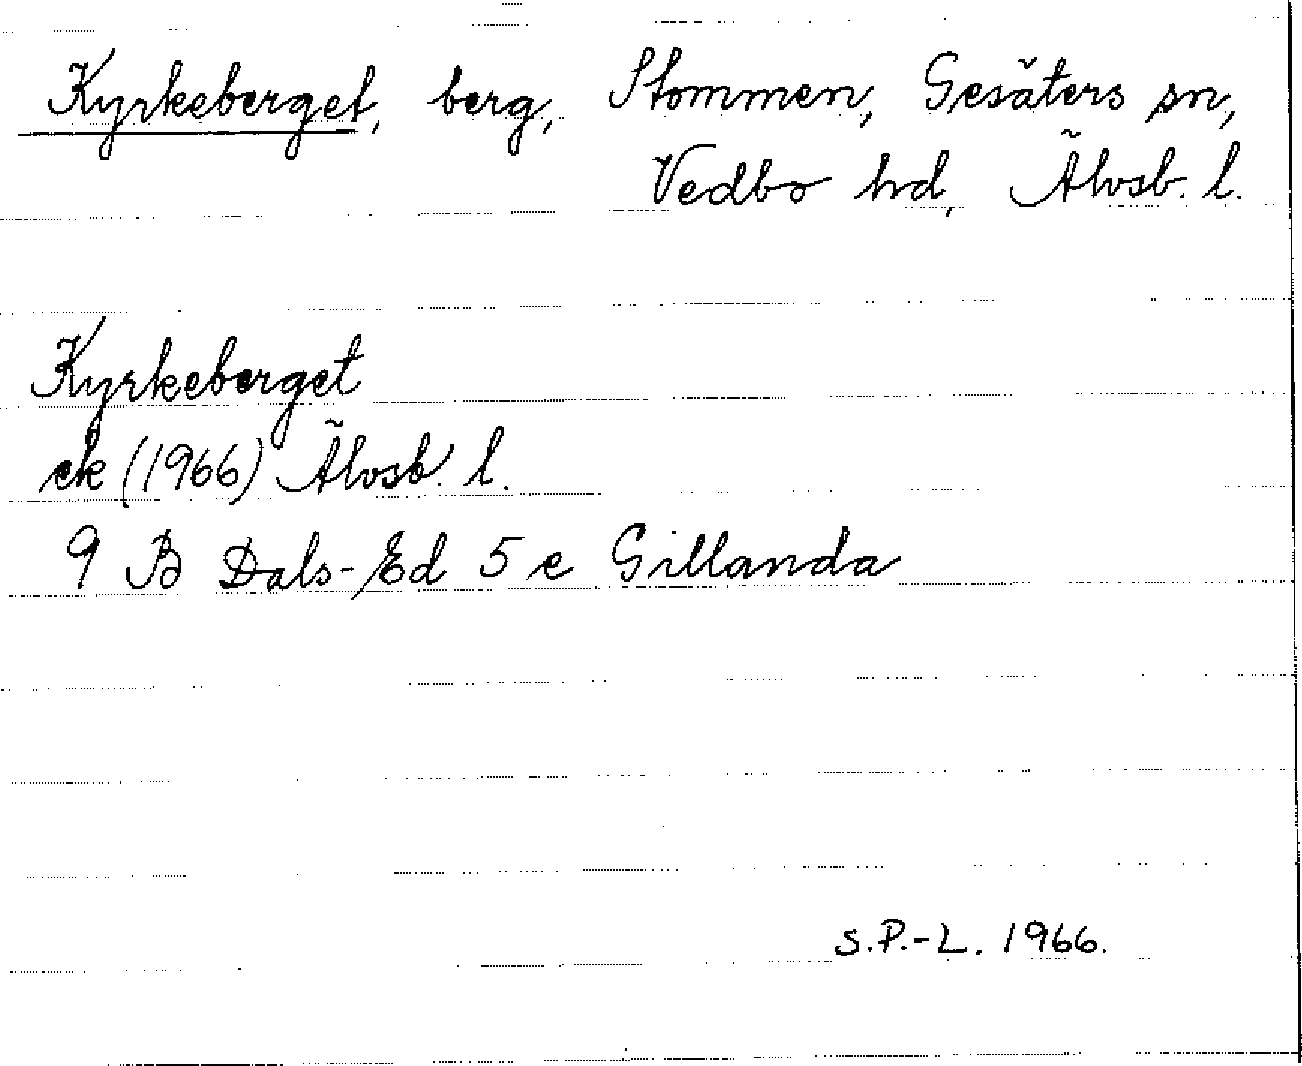 Kyrkeberget, berg, Stommen, Gesäters sn,
Vedbo hd, Älvsb. l.
Kyrkeberget
ek (1966) Älvsb. l.
9 B Dals-Ed 5 e Gillanda
S.P.-L. 1966.